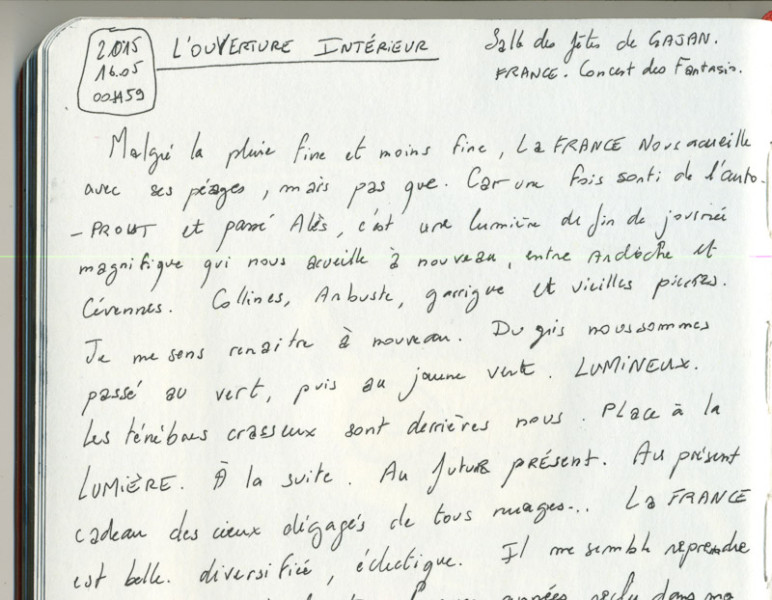 2015
16.05
00H59
L'OUVERTURE INTÉRIEUR
Salle des fêtes de GAJAN.
FRANCE. Concert des Fantasia.
Malgré la pluie fine et moins fine, La FRANCE Nous accueille
avec ses péages, mais pas que. Car une fois sorti de l'auto-
-PROUT et passé Alès, c'est une lumière de fin de journée
magnifique qui nous accueille à nouveau, entre Ardèche et
Cévennes. Collines, Arbuste, garrigue et vieilles pierres.
Je me sens renaitre à nouveau. Du gris nous sommes
passé au vert, puis au jaune vert. LUMINEUX.
Les ténèbres crasseux sont derrières nous. Place à la
LUMIÈRE. À la suite. Au futur PRÉSENT. Au présent
cadeau des cieux dégagés de tous nuages... La FRANCE
est belle. diversifiée, éclectique. Il me semble reprendre
années
dans ma